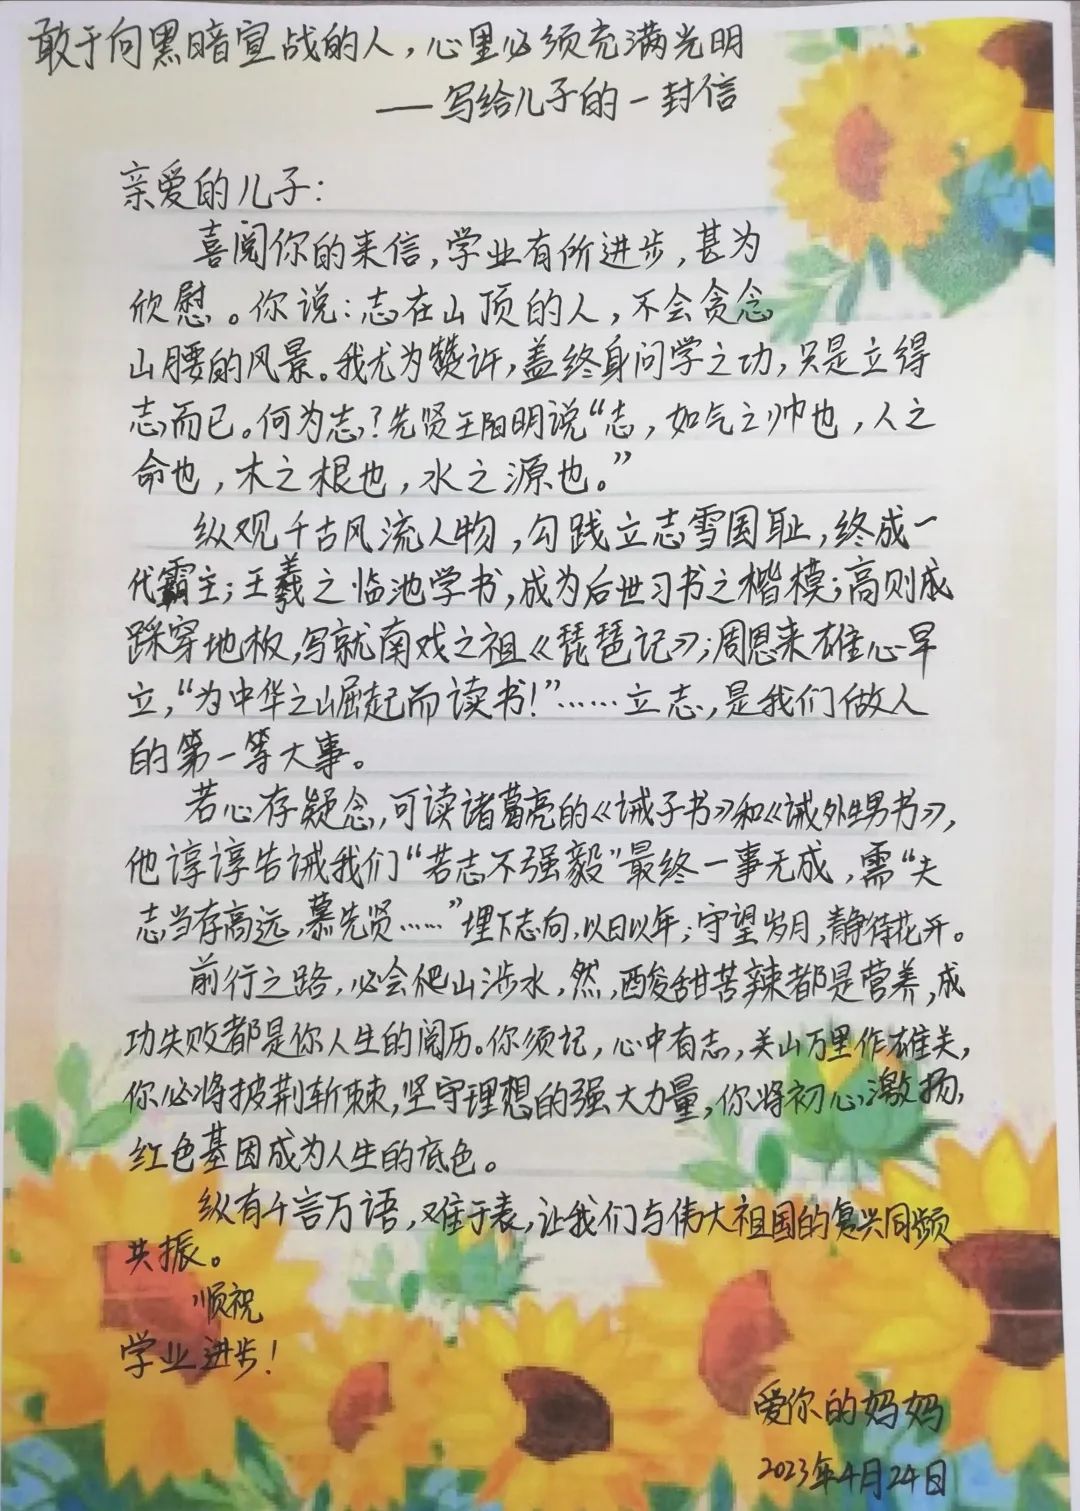 敢于向黑暗宣战的人，心里必须充满光明
——写给儿子的一封信
亲爱的儿子：
喜阅你的来信，学业有所进步，甚为
欣慰。你说：志在山顶的人，不会贪念
山腰的风景。我尤为赞许，盖终身问学之功，只是立得
志而已。何为志？先贤王阳明说“志，如气之帅也，人之
命也，木之根也，水之源也。”
纵观千古风流人物，勾践立志雪国耻，终成一
代霸主；王羲之临池学书，成为后世习书之楷模；高则成
踩穿地板，写就南戏之祖《琵琶记》；周恩来雄心早
立，“为中华之崛起而读书！”……立志，是我们做人
的第一等大事。
若心存疑念，可读诸葛亮的《诫子书》和《诫外甥书》，
他谆谆告诫我们“若志不强毅”最终一事无成，需“夫
志当存高远，慕先贤……”埋下志向，以日以年；守望岁月，静待花开。
前行之路，必会爬山涉水，然，酸甜苦辣都是营养，成
功失败都是你人生的阅历。你须记，心中有志，关山万里作雄关，
你必将披荆斩棘，坚守理想的强大力量，你将初心激扬，
红色基因成为人生的底色。
纵有千言万语，难于表，让我们与伟大祖国的复兴同频
共振。
顺祝
学业进步！
爱你的妈妈
2023年4月24日